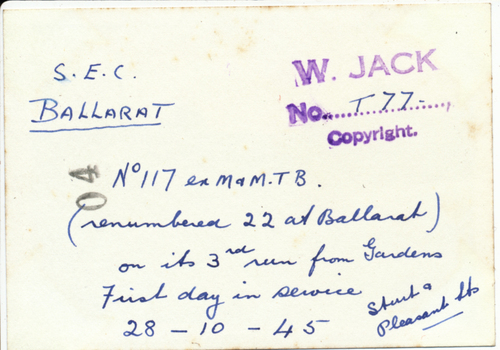 S.E.C.
BALLARAT
W. JACK
No. T 77
Copyright.
04
No 117 ex M & M.T.B.
(renumbered 22 at Ballarat)
on its 3rd run from Gardens
First day in service
28 - 10 - 45
Sturt &
Pleasant Sts